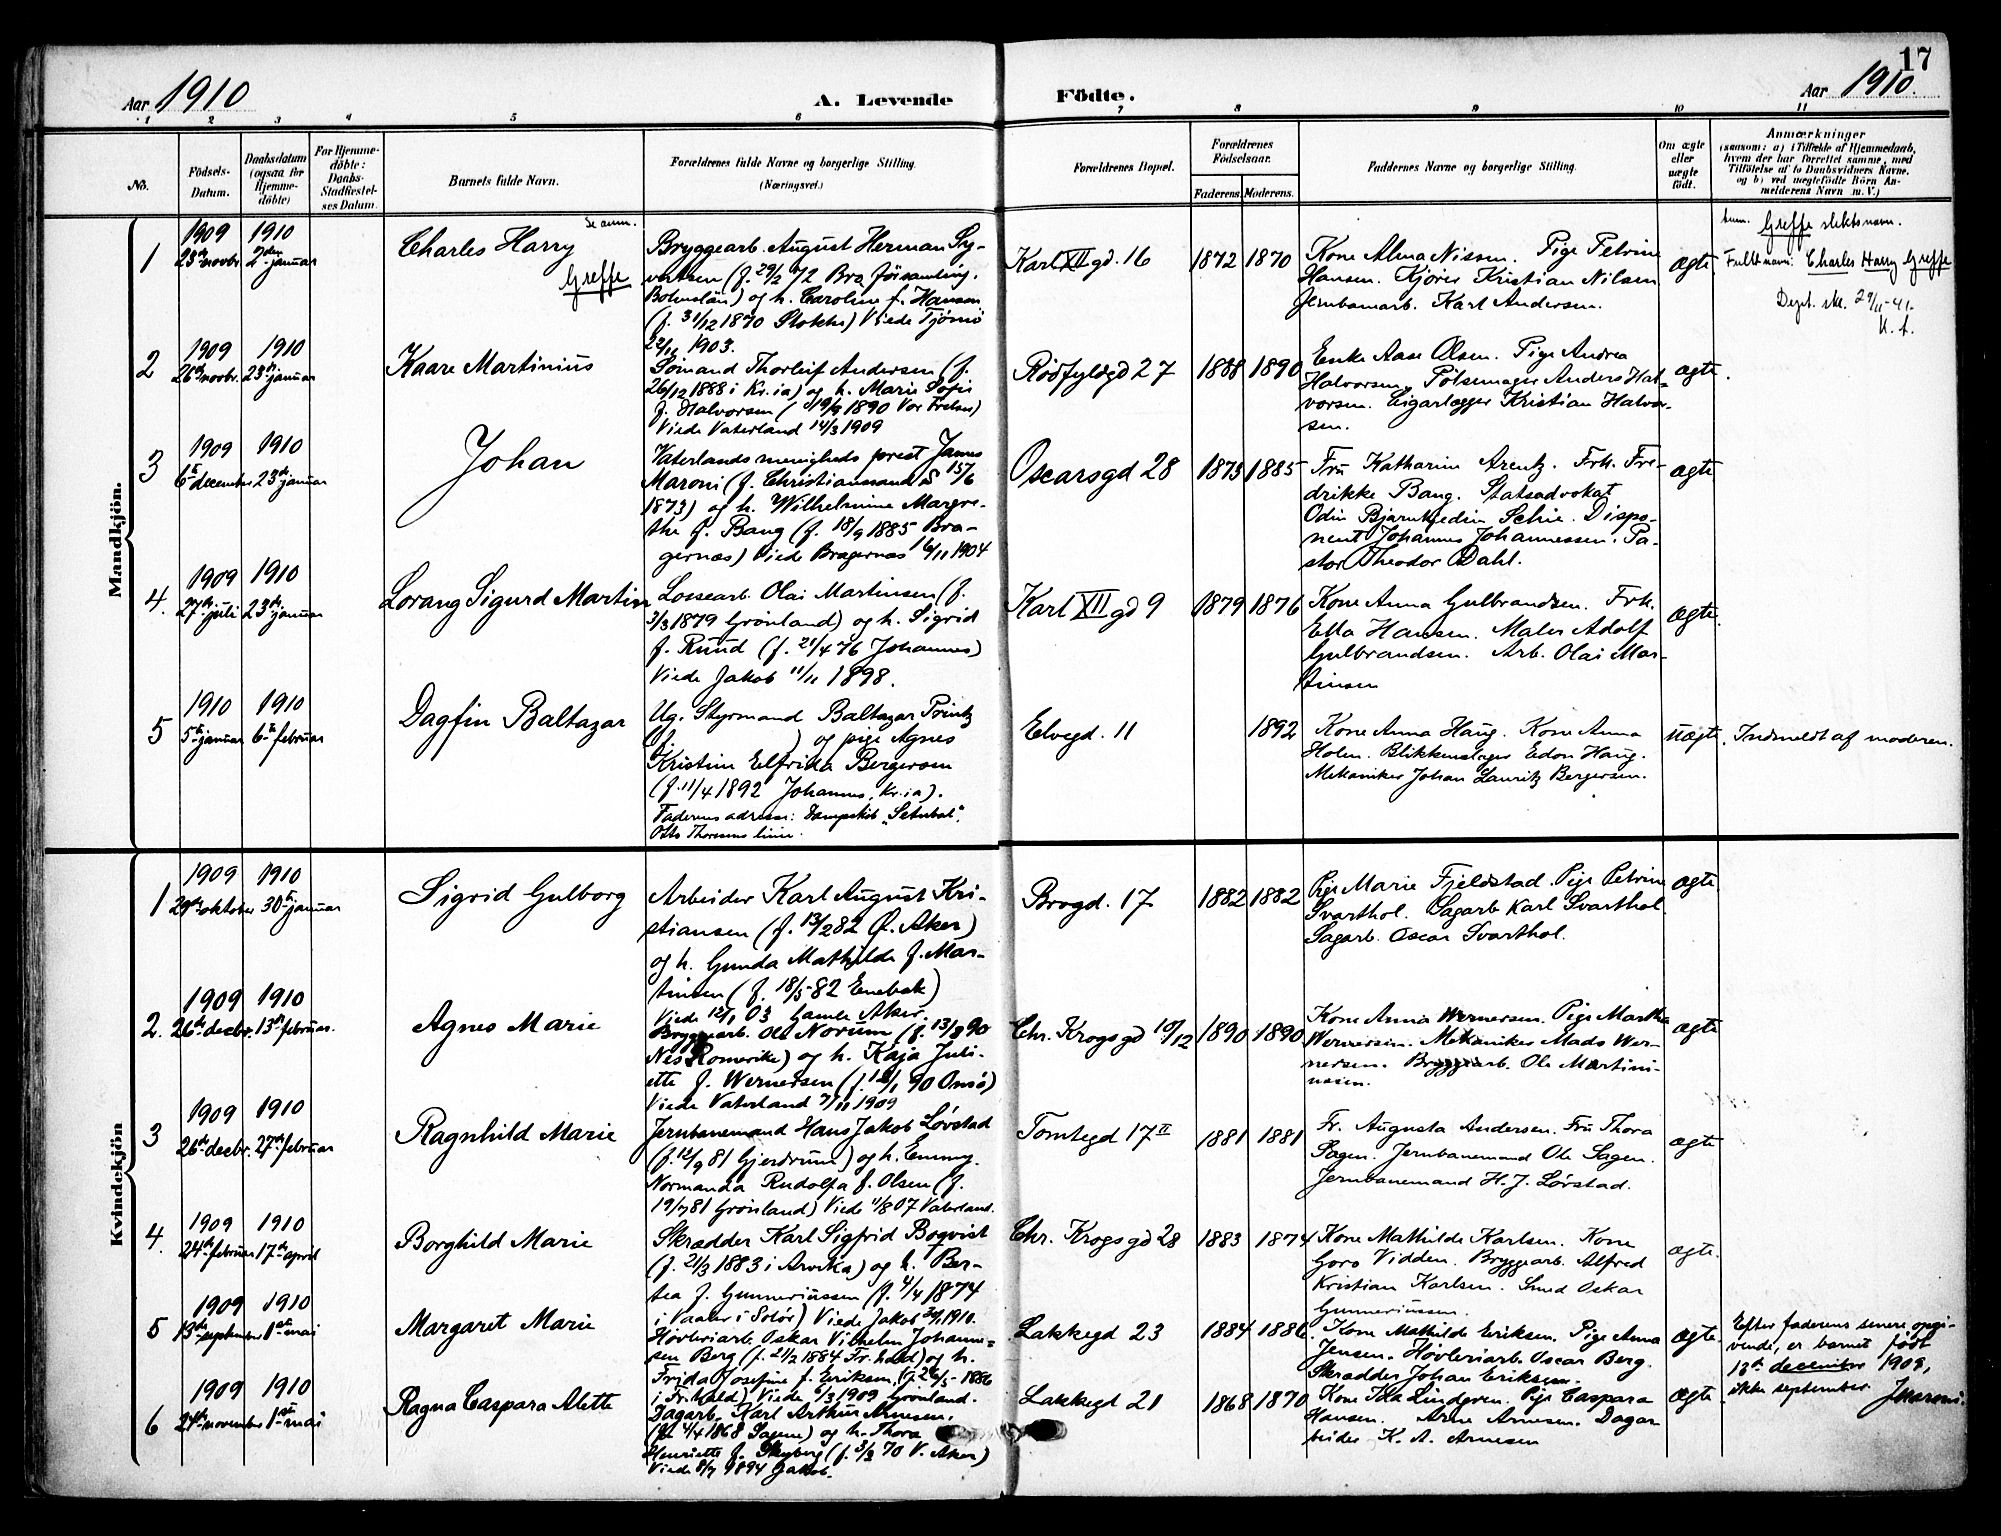 17
Aar 1910
A. Levende
Födte.
Aar 1910.
1 2 3 4 5 6 7 8 9 10 11
No.
Födsels-
Datum.
Daabsdatum
(ogsaa for
Hjemme-
döbte)
For Hjemme-
döbte:
Daabs-
Stadfæstel-
ses Datum.
Barnets fulde Navn.
Forældrenes fulde Navne og borgerlige Stilling.
(Næringsvei.)
Forældrenes Bopæl.
Forældrenes
Födselsaar.
Faderens. Moderens.
Faddernes Navne og borgerlige Stilling.
Om ægte
eller
uægte
födt.
Anmærkninger
(saasom: a) i Tilfælde af Hjemmedaab,
hvem der har forrettet samme, med
Tilföielse af to Daabsvidners Navne,
og b) ved uægtefödte Börn An-
melderens Navn m. V.)
Mandkjön.
1
1909
28de novbr.
1910
2den januar
Charles Harry
Se anm.
Greffe
Bryggearb. August Herman Sy-
vertsen (f. 29/2 72 Bro församling,
Bohuslän) og h. Caroline f. Hansen
(f. 31/12 1870 Stokke) Viede Tjömö
22/11 1903.
Karl XII gd. 16
1872 1870
Kone Alma Nissen. Pige Petrine
Hansen. Kjörer Kristian Nilsen
Jernbanarb. Karl Andersen.
ægte
anm. Greffe slektsnavn.
Fullt navn: Charles Harry Greffe
Dept. skr. 29/11-41.
K. f.
2
1909
26de novbr.
1910
23de januar
Kaare Martinius
Sömand Thorleif Andersen (f.
26/12 1888 i Kr.ia) og h. Marie Sofie
f. Halvorsen (19/9 1890 Vor Frelser)
Viede Vaterland 14/3 1909
Rödfyldgd 27
1888 1890
Enke Aase Olsen. Pige Andrea
Halvorsen. Pölsemager Anders Hal-
vorsen. Cigarlægger Kristian Halvor-
sen.
ægte.
3
1909
6te december
1910
23de januar
Johan
Vaterlands menigheds prest James
Maroni (f. Christianssand S 15/6
1873) og h. Wilhelmine Margre-
the f. Bang (f. 18/9 1885 Bra-
gernæs) Viede Bragernæs 16/11 1904
Oscarsgd 28
1873 1885
Fru Katharine Arentz. Frk. Fre-
drikke Bang. Statsadvokat
Odin Bjarne Schie. Dispo-
nent Johannes Johannessen. Pa-
stor Theodor Dahl.
ægte
4.
1909
27de juli
1910
23de januar
Lorang Sigurd Martin
Lossearb. Olai Martinsen (f.
3/3 1879 Grönland) og h. Sigrid
f. Ruud (f. 21/4 76 Johannes)
Viede Jakob 11/11 1898.
Karl XII gd 9
1879 1876
Kone Anna Gulbrandsen. Frk.
Ella Hansen. Maler Adolf
Gulbrandsen. Arb. Olai Mar-
tinsen
ægte.
5
1910
5te januar
1910
6te februar
Dagfin Baltazar
Ug. Styrmand Baltazar Printz
( ) og pige Agnes
Kristine Elfrida Bergersen
(f. 11/4 1892 Johannes, Kr.ia).
Faderens adresse: Dampskib "Setubal",
Otto Thoresens linie.
Elvegd. 11
1892
Kone Anna Haug. Kone Anna
Holen. Blikkenslager Edon Haug.
Mekaniker Johan Lauritz Bergersen.
uægte.
Indmeldt af moderen.
Kvindekjön
1
1909
29de oktober
1910
30te januar
Sigrid Gulborg
Arbeider Karl August Kri-
stiansen (f. 13/2 82 Ø. Aker)
og h. Gunda Mathilde f. Mar-
tinsen (f. 18/5 82 Enebak)
Viede 12/1 03 Gamle Aker.
Brogd. 17
1882 1882
Pige Marie Fjeldstad. Pige Petrine
Svarthol. Sagarb. Karl Svarthol.
Sagarb. Oscar Svarthol.
ægte
2.
1909
26de decbr.
1910
13de februar.
Agnes Marie
Bryggearb. Ole Norum (f. 13/8 90
Nes Romerike) og h. Kaja Juli-
ette f. Wernersen (f. 18/1 90 Onsö)
Viede Vaterland 7/11 1909
Chr. Krogsgd 10/12
1890 1890
Kone Anna Wernersen. Pige Martha
Wernersen. Mekaniker Mads Wer-
nersen. Bryggearb. Ole Martini-
ussen.
ægte
3
1909
26de decbr.
1910
27de februar
Ragnhild Marie
Jernbanemand Hans Jakob Lövstad
(f. 12/9 81 Gjerdrum) og h. Emmy
Normanda Rudolfa f. Olsen (f.
19/7 81 Grönland) Viede 11/8 07 Vaterland.
Tomtegd 17 II
1881 1881
Fr. Augusta Andersen. Fru Thora
Sagen. Jernbanemand Ole Sagen.
Jernbanemand H. J. Lövstad.
ægte
4.
1909
24de februar
1910
17de april
Borghild Marie
Skrædder Karl Sigfrid Boqvist
(f. 21/3 1883 i Arvika) og h. Ber-
tea f. Gunneriussen (f. 4/4 1874
i Vaaler i Solör) Viede Jakob 1910.
Chr. Krogsgd 28
1883 1874
Kone Mathilde Karlsen. Kone
Goro Vidden. Bryggearb. Alfred
Kristian Karlsen. Smed Oskar
Gunneriussen.
ægte.
5
1909
13de september
1910
1ste mai
Margaret Marie
Hövleriarb. Oskar Vilhelm Johann-
sen Berg (f. 21/2 1884 Fr.hald) og h.
Frida Josefine f. Eriksen (f. 26/5 1886
i Fr.hald) Viede 6/3 1909 Grönland.
Lakkegd 23
1884 1886
Kone Mathilde Eriksen. Pige Anna
Jensen. Hövleriarb. Oscar Berg.
Skrædder Johan Eriksen.
ægte.
Efter faderens senere opgi-
vende, er barnet født
13de december 1908,
ikke september. J Maroni.
6
1909
24de november
1910
1ste mai
Ragna Caspara Alette
Dagarb. Karl Arthur Arnesen.
(f. 4/4 1868 Sagene) og h. Thora
Henriette f. Skyberg (f. 3/3 70 V. Aker)
Viede 8/7 1894 Jakob.
Lakkegd 21
1868 1870
Kone Ida Lindgren. Pige Caspara
Hansen. Arne Arnesen. Dagar-
beider K. A. Arnesen
ægte